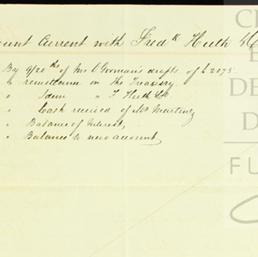 ount Current with Fredk Huth & C
By 9/20ths of Mr O'Gorman's drafts of £2075.
" remittance on the Treasury
" Idem " F Huth & Co
" Cash received of Mr Martinez
" Balance of Interest,
" Balance to new account,
C
E
DE
D
FU